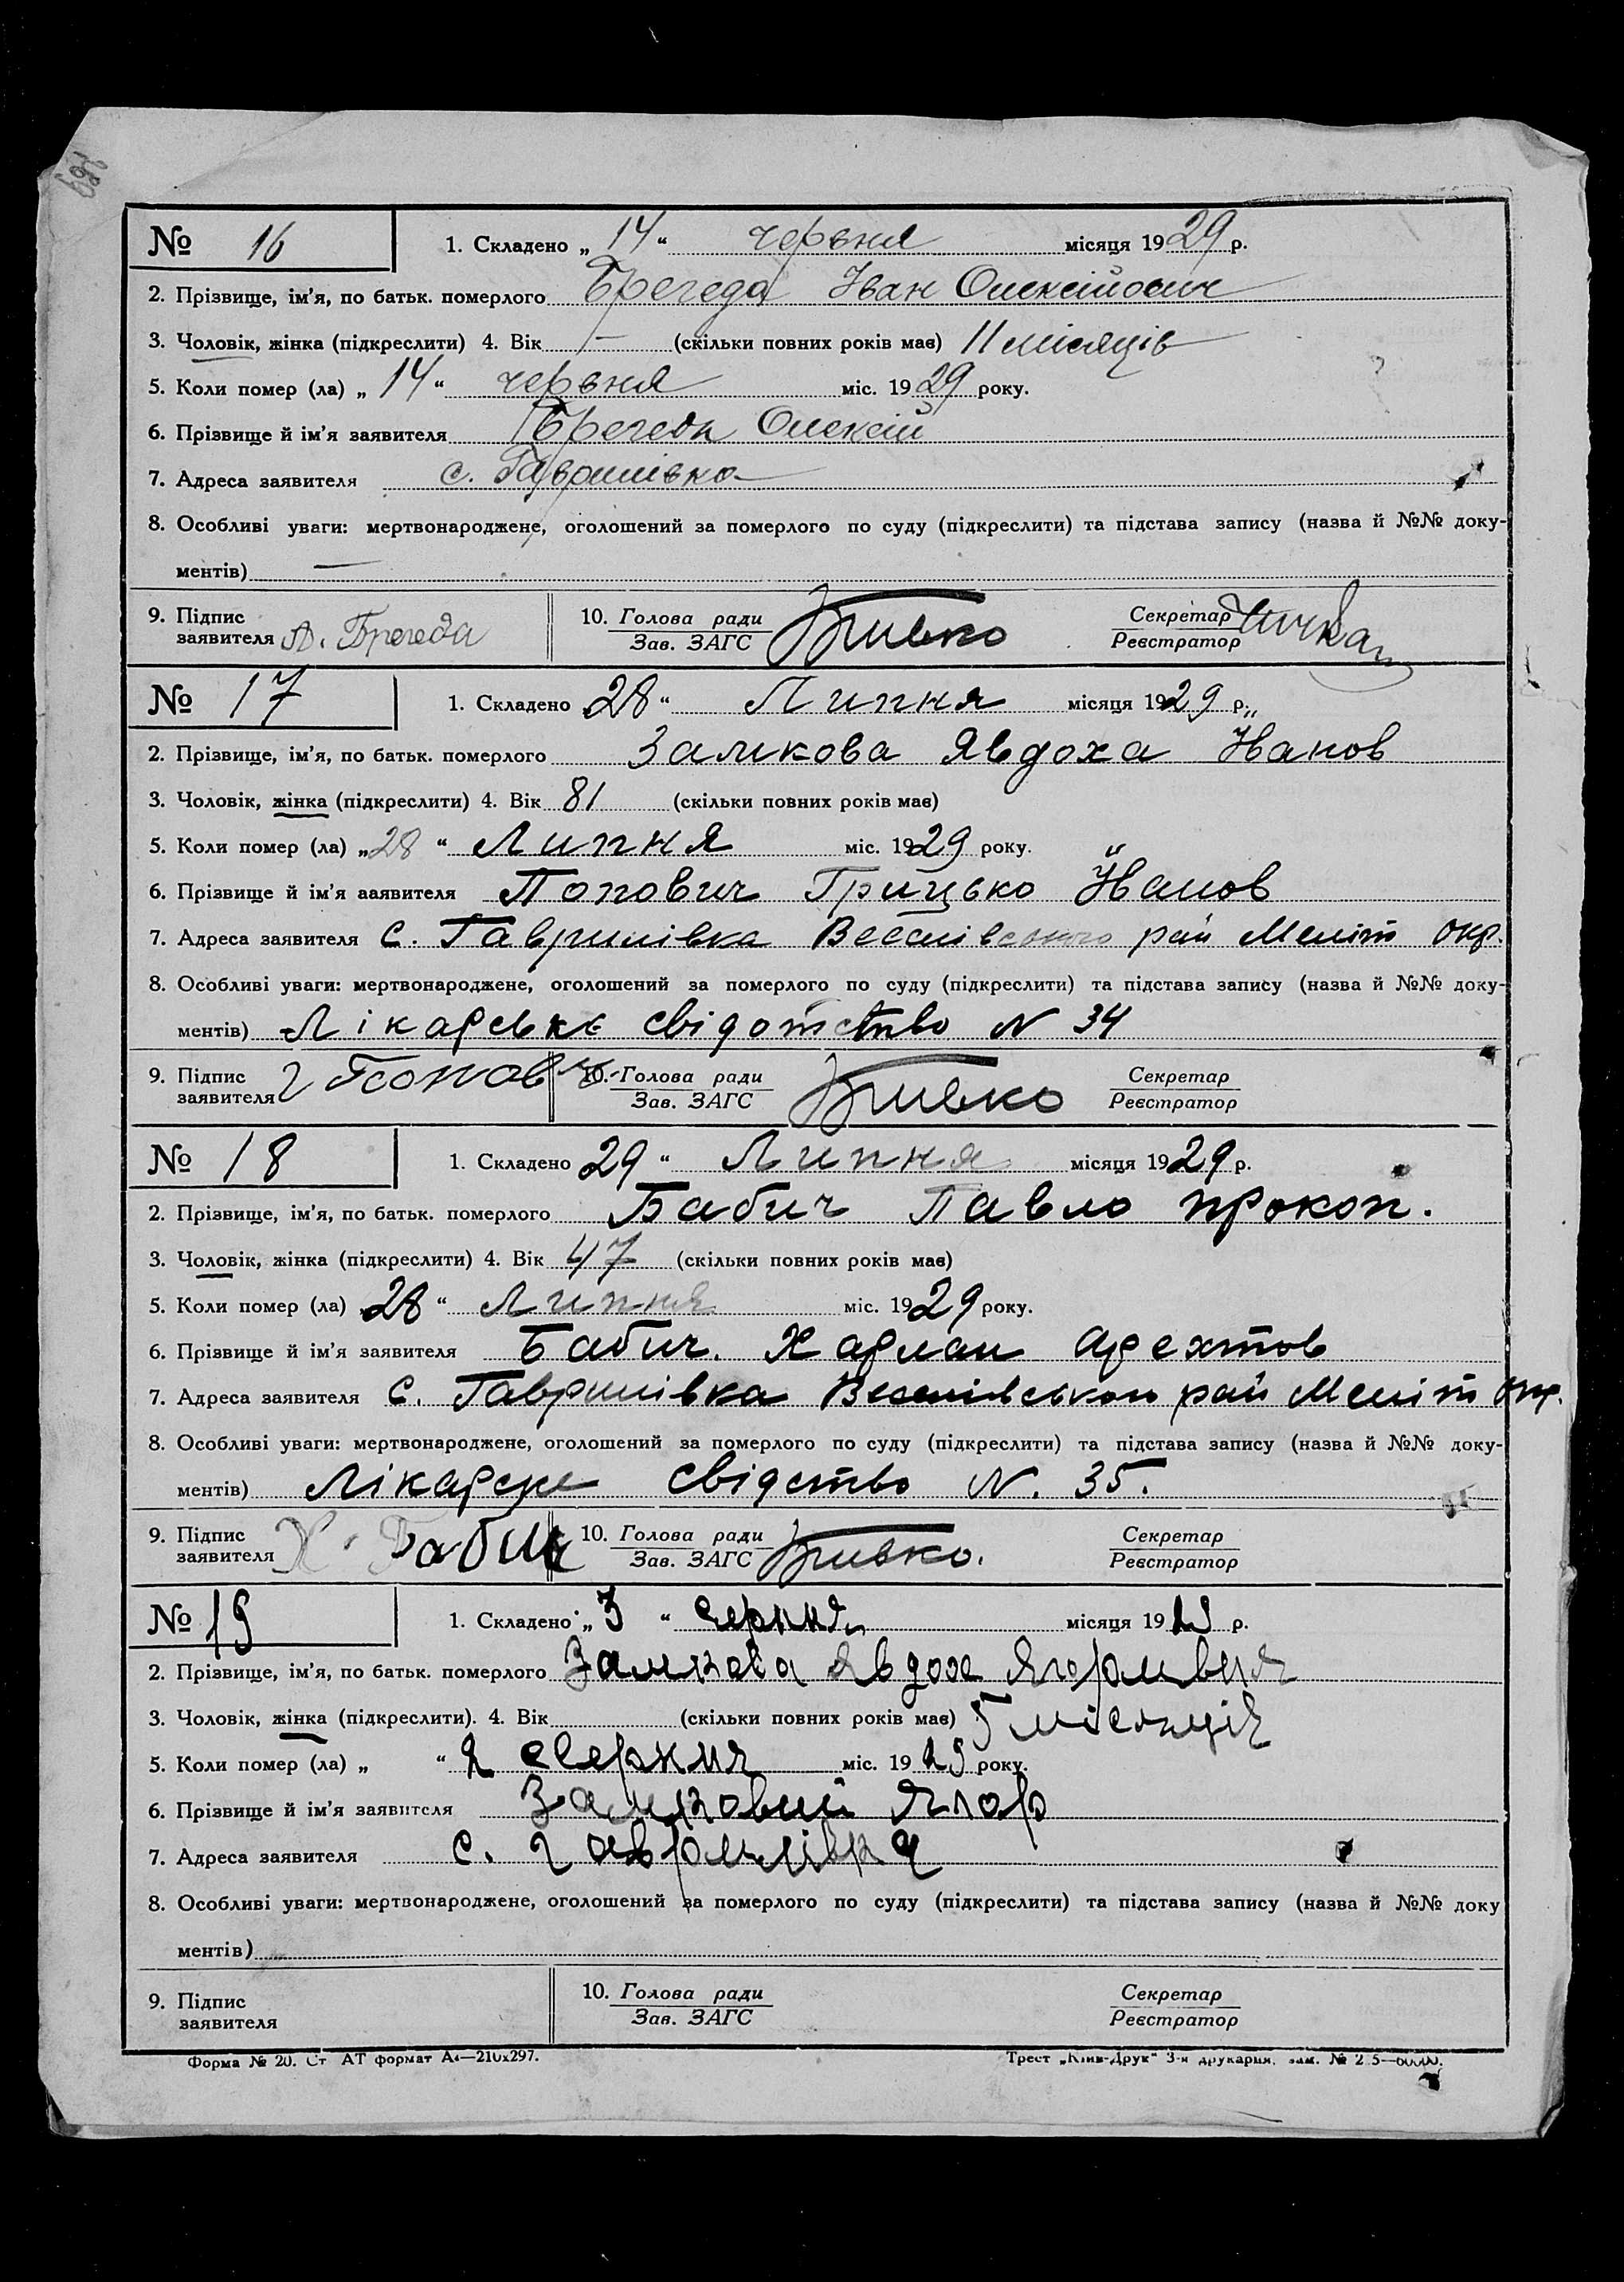 269
№ 16 1. Складено „ 14 “ червня місяця 1929 р.
2. Прізвище, ім'я, по батьк. померлого Брегеда Іван Олексійович
3. Чоловік, жінка (підкреслити) 4. Вік — (скільки повних років має) 11 місяців
5. Коли помер (ла) „ 14 “ червня міс. 1929 року.
6. Прізвище й ім'я заявителя Брегеда Олексій
7. Адреса заявителя с. Гаврилівка
8. Особливі уваги: мертвонароджене, оголошений за померлого по суду (підкреслити) та підстава запису (назва й №№ доку-
ментів) —
9. Підпис заявителя А. Брегеда 10. Голова ради Зав. ЗАГС Секретар Реєстратор
№ 17 1. Складено 28 “ Липня місяця 1929 р.
2. Прізвище, ім'я, по батьк. померлого Замкова Явдоха Іванов
3. Чоловік, жінка (підкреслити) 4. Вік 81 (скільки повних років має)
5. Коли помер (ла) „ 28 “ Липня міс. 1929 року.
6. Прізвище й ім'я заявителя Попович Грицько Іванов
7. Адреса заявителя С. Гаврилівка Веселівського рай Меліт окр.
8. Особливі уваги: мертвонароджене, оголошений за померлого по суду (підкреслити) та підстава запису (назва й №№ доку-
ментів) Лікарське свідотство N 34
9. Підпис заявителя Г Попович 10. Голова ради Зав. ЗАГС Секретар Реєстратор
№ 18 1. Складено 29 “ Липня місяця 1929 р.
2. Прізвище, ім'я, по батьк. померлого Бабич Павло прокоп.
3. Чоловік, жінка (підкреслити) 4. Вік 47 (скільки повних років має)
5. Коли помер (ла) 28 “ Липня міс. 1929 року.
6. Прізвище й ім'я заявителя Бабич. Харлан
7. Адреса заявителя С. Гаврилівка Веселівського рай Меліт окр.
8. Особливі уваги: мертвонароджене, оголошений за померлого по суду (підкреслити) та підстава запису (назва й №№ доку-
ментів) Лікарске свідство N. 35.
9. Підпис заявителя Х. Бабич 10. Голова ради Зав. ЗАГС Секретар Реєстратор
№ 19 1. Складено „ 3 “ серпня місяця 1929 р.
2. Прізвище, ім'я, по батьк. померлого Замкова Явдоха
3. Чоловік, жінка (підкреслити). 4. Вік (скільки повних років має) 5 місяців
5. Коли помер (ла) „ “ 2 серпня міс. 1929 року.
6. Прізвище й ім'я заявителя Замковий Ягор
7. Адреса заявителя с. гаврилівка
8. Особливі уваги: мертвонароджене, оголошений за померлого по суду (підкреслити) та підстава запису (назва й №№ доку
ментів)
9. Підпис заявителя 10. Голова ради Зав. ЗАГС Секретар Реєстратор
Форма № 20. Ст АТ формат А4—210x297. Трест „Київ-Друк“ 3-я друкарня,